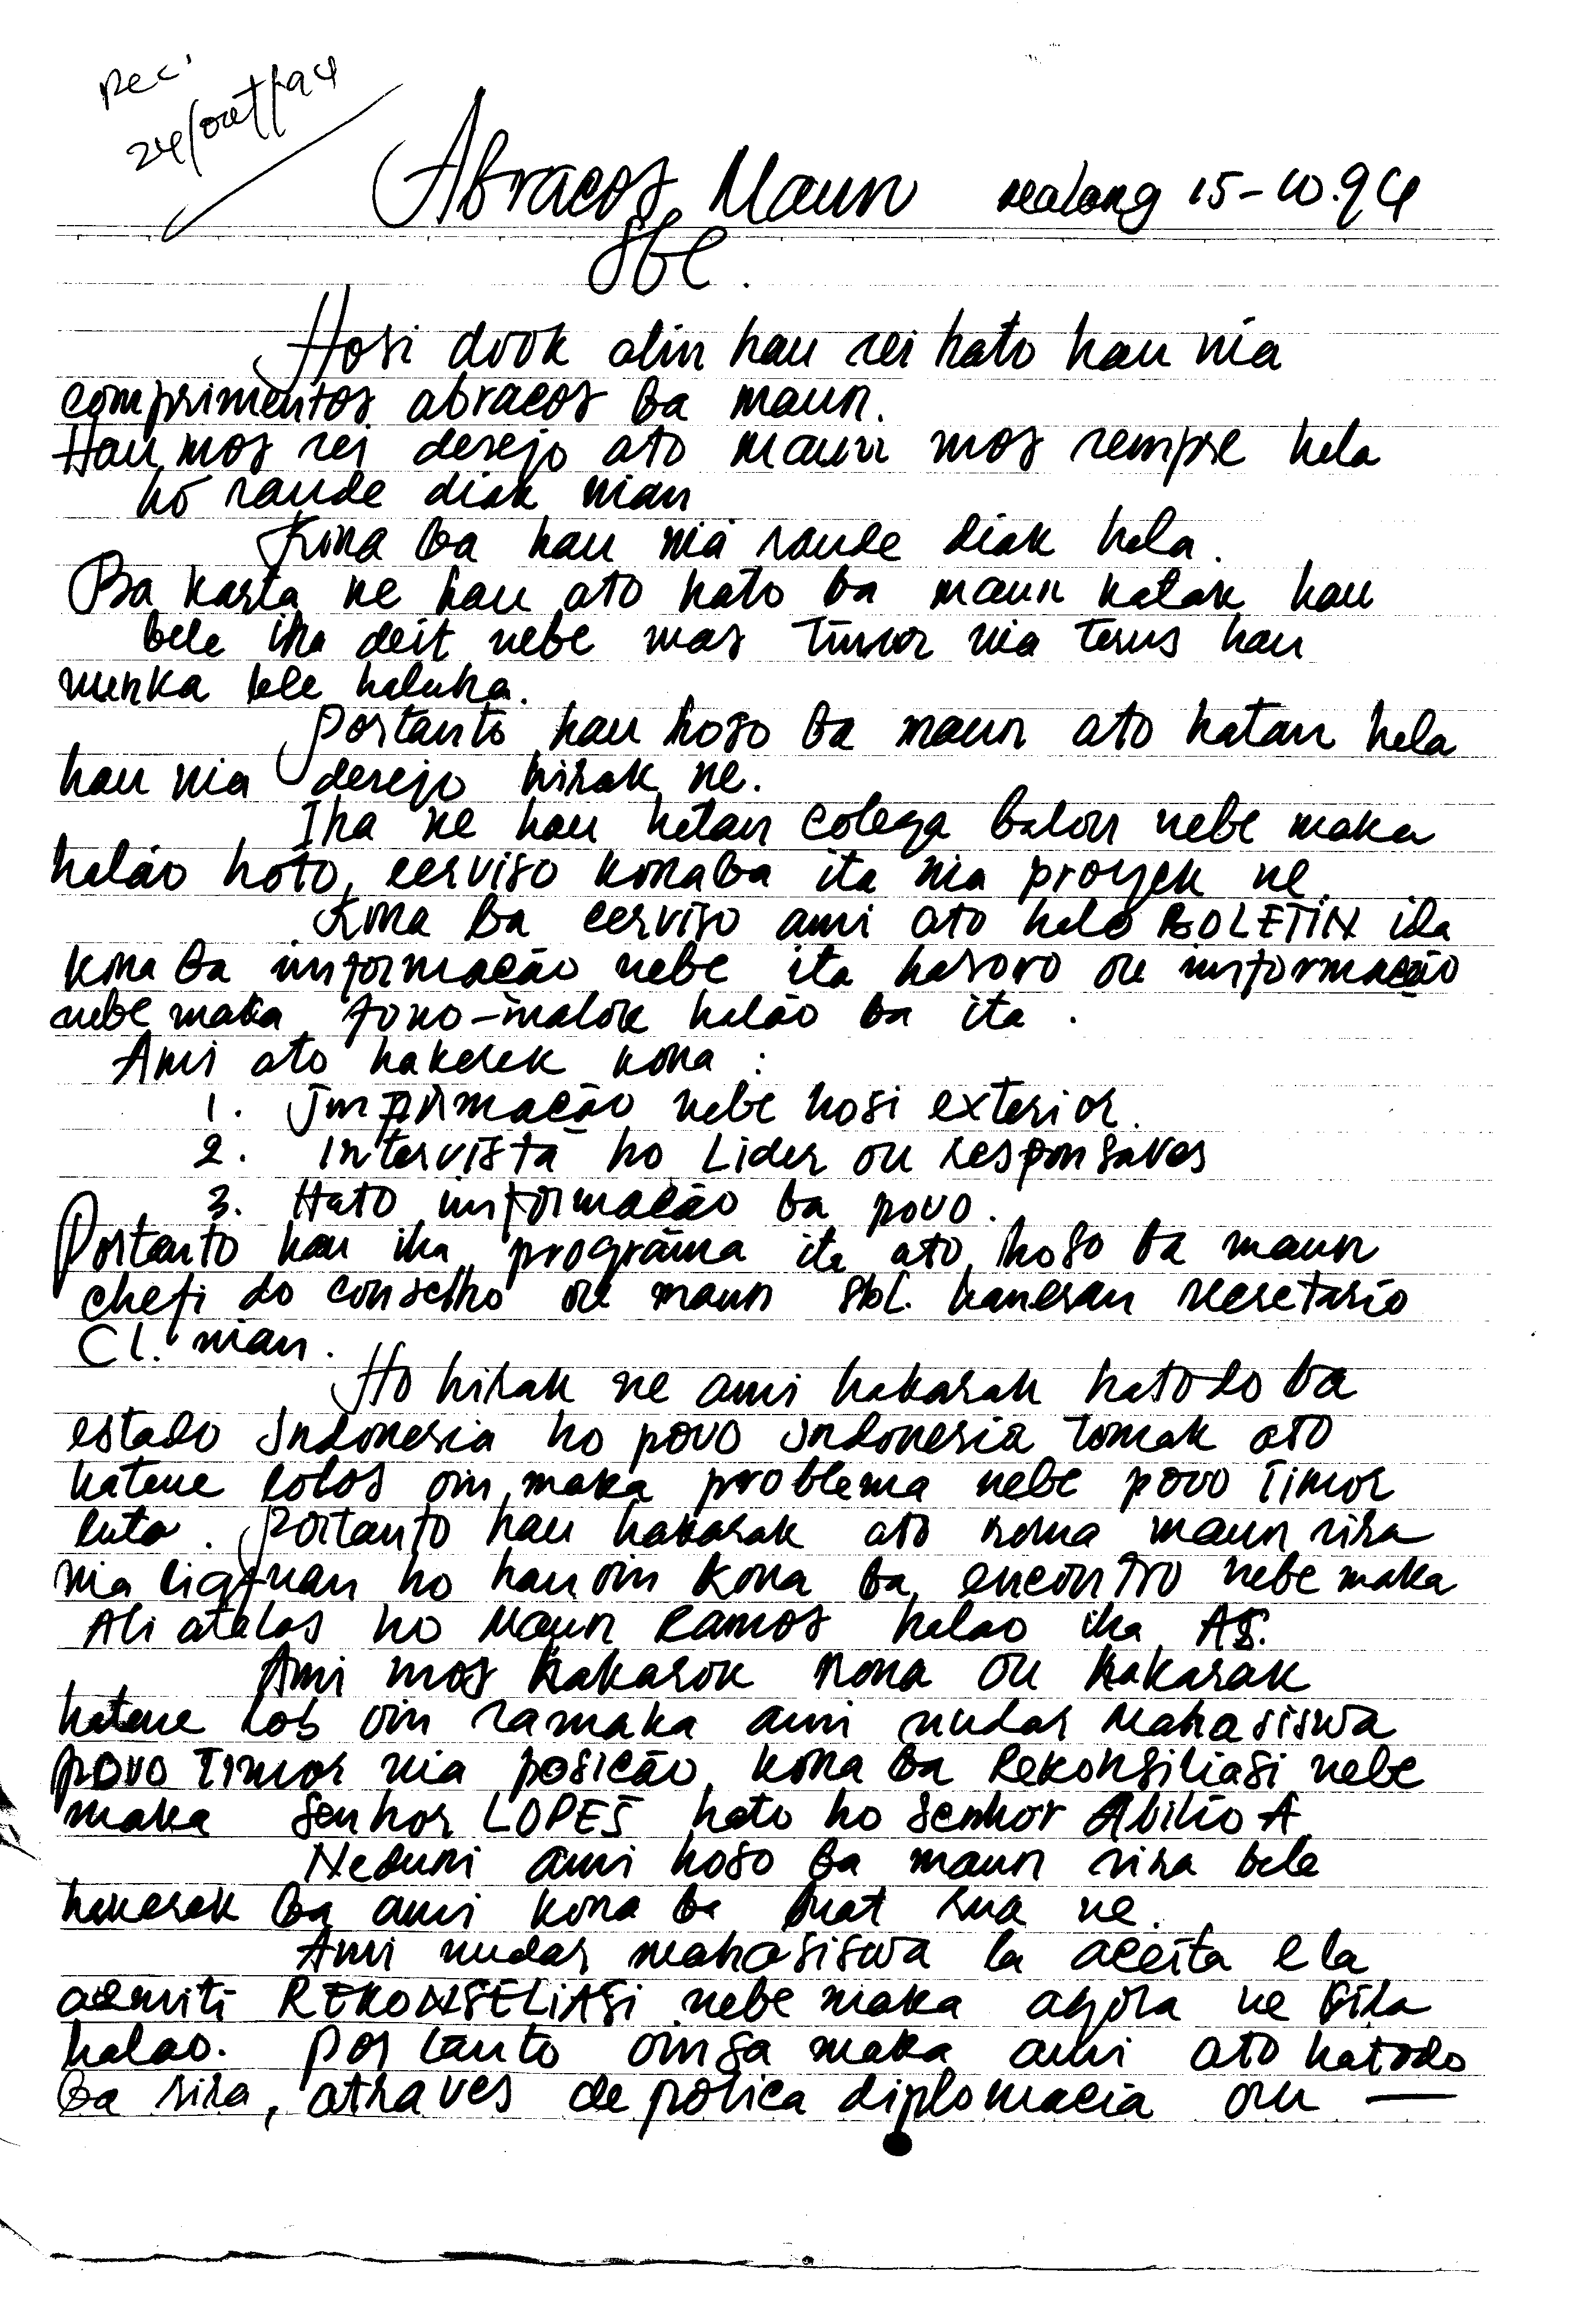 Rec.
24/out/94
Abraços, Maun Malang 15-10.94
Hosi dook alin hau sei hato hau nia
comprimentos abraços ba maun.
Hau mos sei desejo ato maun mos sempre hela
ho saude diak nian
Kona ba hau nia saude diak hela.
Ba karta ne hau ato hato ba maun katak hau
bele iha deit nebe mas Timor nia terus hau
nunka bele haluha.
Portanto hau hoso ba maun ato hatan hela
hau nia desejo hirak ne.
Iha ne hau hetan colega balon nebe maka
halão hoto, cerviso konaba ita nia proyek ne.
Kona ba cerviso ami ato halo BOLETIN ida
kona ba informação nebe ita hasoro ou informação
nebe maka fono-malok halão ba ita.
Ami ato hakerek kona :
1. Informação nebe hosi exterior.
2. Intervista ho Lider ou responsaves
3. Hato informação ba povo.
Portanto hau iha programa ita ato hoso ba maun
chefi do conselho ou maun Sbl. hanesan secretario
Cl. nian.
Ho hirak ne ami hakarak hatodo ba
estado Indonesia ho povo Indonesia tomak ato
hatene lolos oin maka problema nebe povo Timor
luta. Portanto hau hakarak ato rona maun sira
nia liafuan ho hanoin kona ba encontro nebe maka
Ali atalas ho Maun Ramos halao iha AS.
Ami mos hakarok rona ou hakarak
hatene lob oin samaka ami nudar mahasiswa
povo Timor nia posição kona ba Rekonsiliasi nebe
maka Senhor LOPES hato ho Senhor Abilio A
Neduni ami hoso ba maun sira bele
hakerek ba ami kona ba buat rua ne.
Ami nudar mahasiswa la aceita e la
admiti REKONSELIASI nebe maka agora ne sira
halao. Portanto oinsa maka ami ato hatodo
ba sira, atraves de polica diplomacia ou —